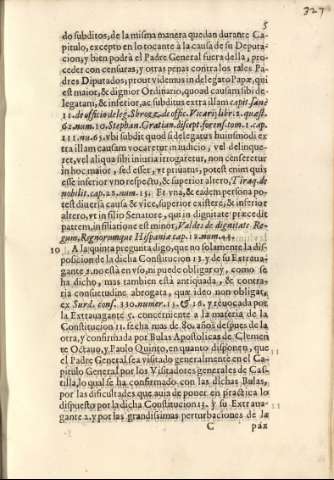 327
5
do subditos, de la misma manera quedan durante Ca-
pitulo, excepto en lo tocante à la causa de su Deputa-
cion, y bien podrà el Padre General fuera della, pro-
ceder con censuras, y otras penas contra los tales Pa-
dres Diputados, prout videmus in delegato Papæ, qui
est maior, & dignior Ordinario, quoad causam sibi de-
legatam, & inferior, ac subditus extra illam capit. sanè
11. de officio deleg. Sbroz. de offic. Vicarij libr. 2. quæst.
62. num. 10. Stephan. Gratian. discept. forens. tom. 1. cap.
111. nu. 63. vbi subdit quod si delegatus huiusmodi ex
tra illam causam vocaretur in iudicio, vel delinque-
ret, vel aliqua sibi iniuria irrogaretur, non censeretur
in hoc maior, sed esset, vt priuatus, potest enim quis
esse inferior vno respectu, & superior altero, Tiraq. de
nobilit. cap. 25. num. 15. Et vna, & eadem persona po-
test diuersa causa & vice, superior existere, & inferior
altero, vt in filio Senatore, qui in dignitate præcedit
patrem, in filiatione est minor, Valdes de dignitate Re-
gum, Regnorumque Hispaniæ cap. 12. num. 44.
10 A la quinta pregunta digo, que no solamente la dis-
posicion de la dicha Constitucion 13. y de su Extraua-
gante 2. no està en vso, ni puede obligar oy, como se
ha dicho, mas tambien està antiquada, & contra-
ria consuetudine abrogata, quæ ideo non obligat,
ex Surd. cons. 330. numer. 15. & 16. y reuocada por
la Extrauagante 5. concerniente a la materia de la
Constitucion 11. fecha mas de 80. años despues de la
otra, y confirmada por Bulas Apostolicas de Clemen
te Octauo, y Paulo Quinto, en quanto disponen, que
el Padre General sea visitado generalmente en el Ca-
pitulo General por los Visitadores generales de Cas-
tilla, lo qual se ha confirmado con las dichas Bulas,
por las dificultades que auia de poner en practica lo
dispuesto por la dicha Constitucion 13. y su Extraua-
gante 2. y por las grandissimas perturbaciones de la
C paz